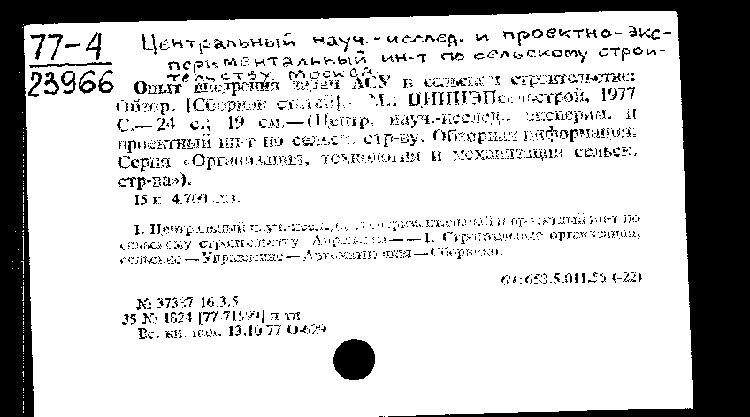 77-4
23966
Центральный науч.-исслед. и проектно-экс-
периментальный ин-т по сельскому строи-
тельству. Москва.
Опыт внедрения задач АСУ в сельском строительстве:
Обзор. [Сборник статей]. М., 1977
С.— 24 с.; 19 см.— (Центр. науч.-исслед., эксперим. и
проектный ин-т по сельск. стр-ву. Обзорная информация.
Серия «Организация, технология и механизация сельск.
стр-ва»).
15 к.
1. Центральный и проектный ин-т по
сельскому строительству — — 1. Строительные организации,
сельские — Управление — Автоматизация — Сборники.
(-22)
№ 37397 16.3.5
35 № 1824 [77-71599] п тп
Вс. кн. пал. 13.10 77 О-629